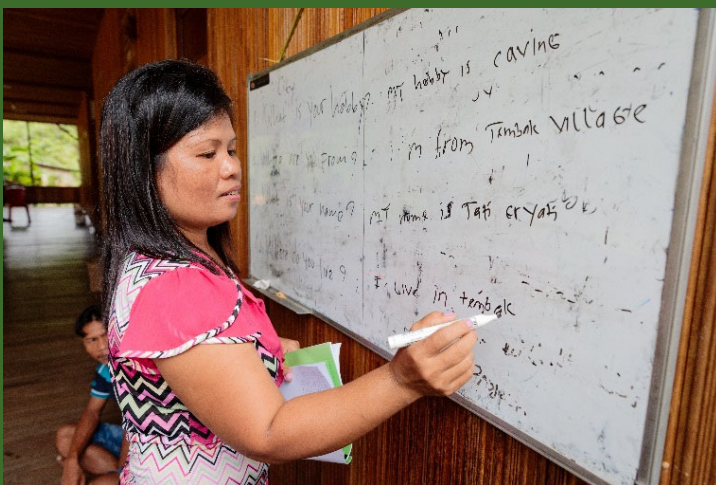 What is your hobby? MY hobby is caving
from? I'm from Tembak Village
is your name? MY name is Tati eryati
Where do you live? I Live in tembak